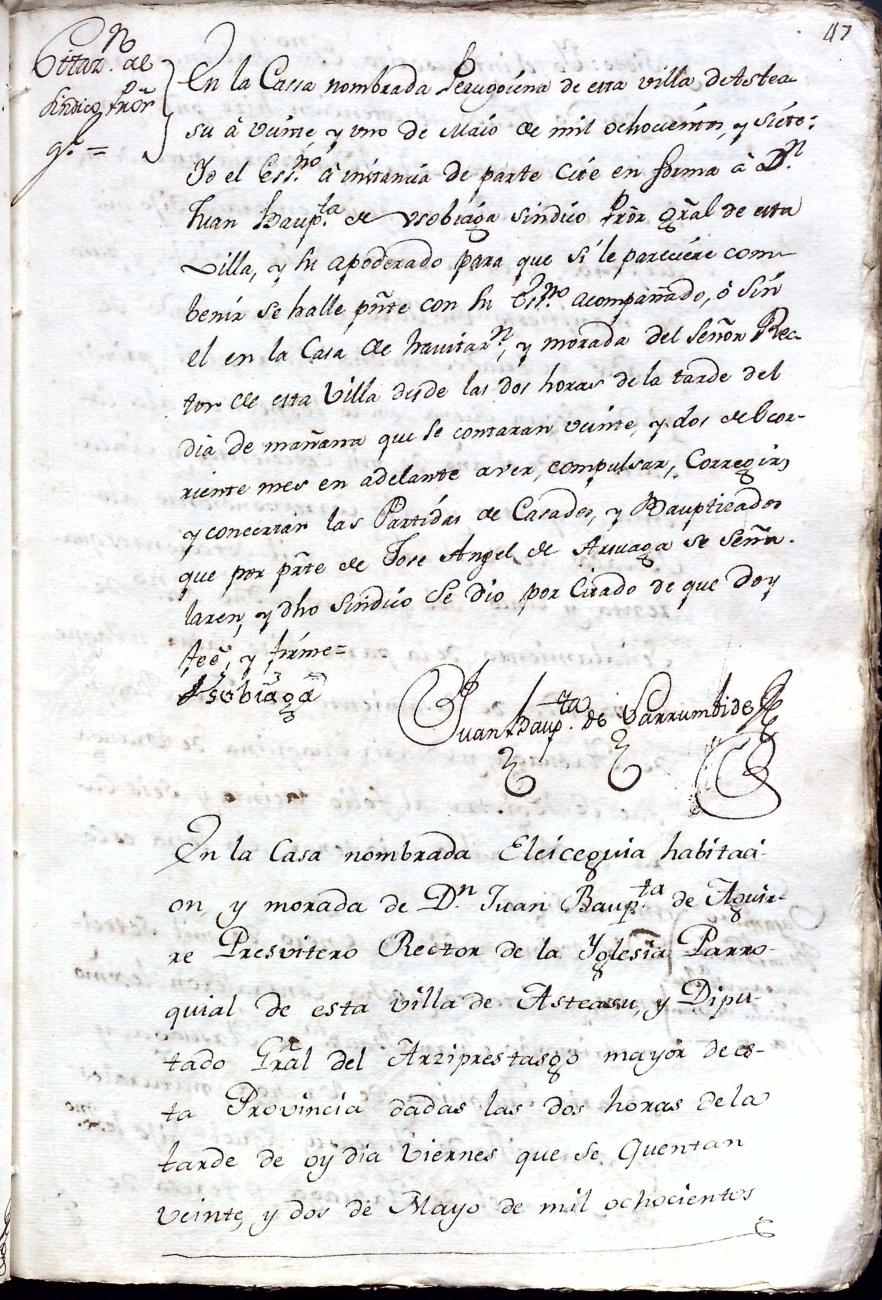 47
Cittaz.n al
Sindico Prõr
g.l =
En la Cassa nombrada Perugoiena de esta villa de Astea-
su à veinte y uno de Maio de mil ochocientos, y siete:
Yo el Ess.no à instancia de parte cite en forma à D.n
Juan Baup.ta de Usobiaga sindico Prõr gr̃al de esta
Villa, y su apoderado para que si le pareciere com-
benir se halle pñte con su Ess.no acompañado, ò sin
el en la Casa de havitaz.n, y morada del Señor Rec-
tor de esta Villa desde las dos horas de la tarde del
dia de mañana que se contaran veinte, y dos del cor-
riente mes en adelante a ver, compulsar, Corregir,
y concertar las Partidas de Casados, y Bauptizados
que por pr̃te de Jose Angel de Aruaga se Seña-
laren, y dho sindico se dio por Citado de que doy
feé, y firme=
Usobiaga
Juan Baup.ta de Larrumbide
En la Casa nombrada Eleiceguia habitaci-
on y morada de D.n Juan Baup.ta de Aguir-
re Presvitero Rector de la Yglesia Parro-
quial de esta villa de Asteasu, y Dipu-
tado Grãl del Arziprestasgo mayor de es-
ta Provincia dadas las dos horas de la
tarde de oy dia Viernes que se Quentan
veinte, y dos de Mayo de mil ochocientos